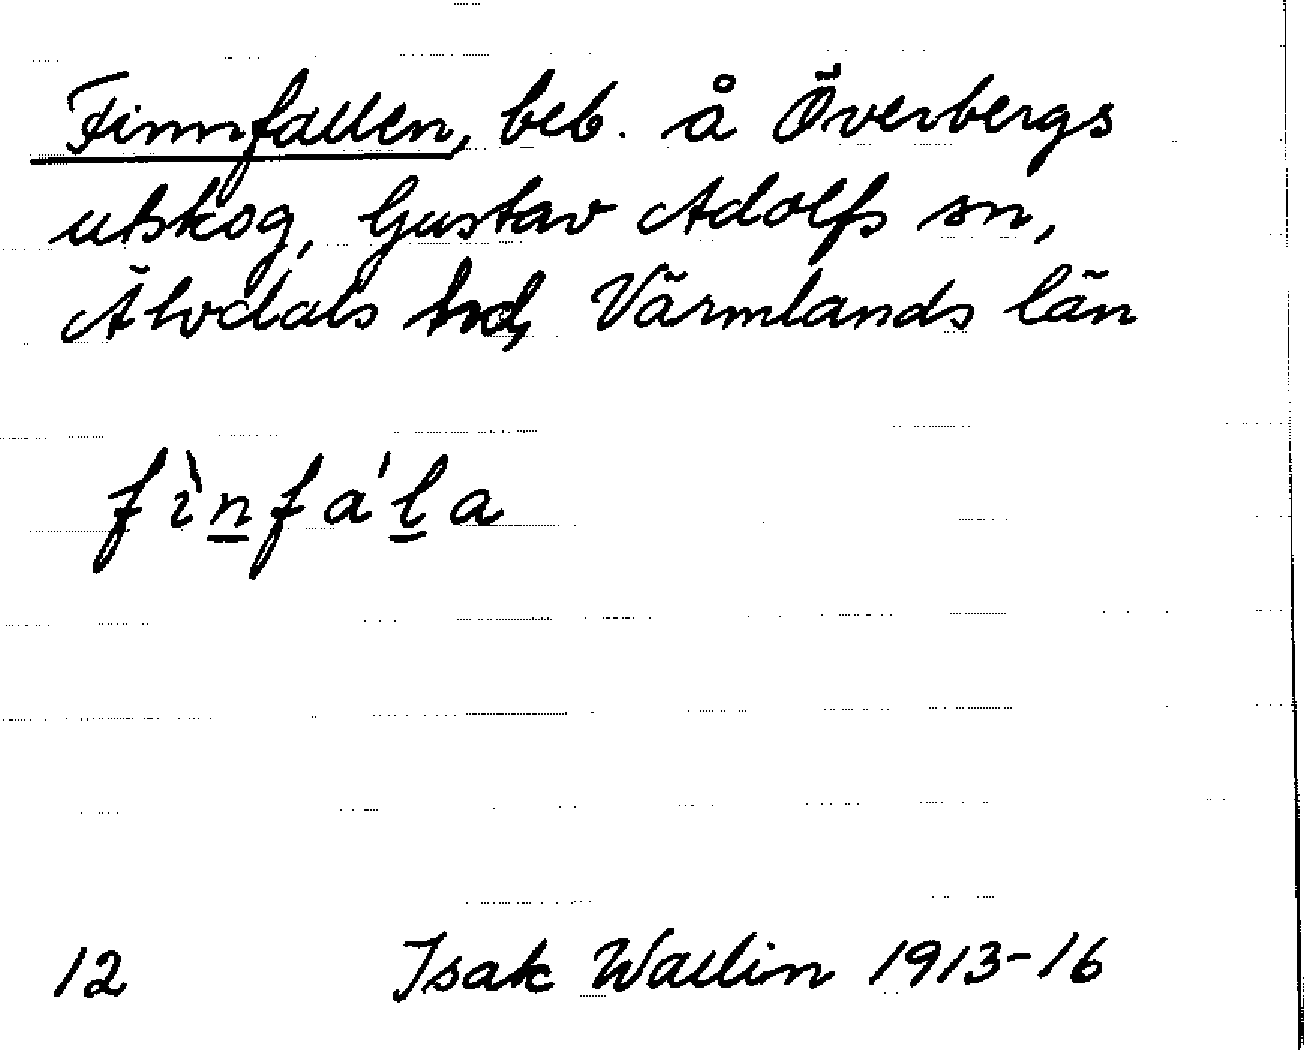 Finnfallen, beb. å Överbergs
utskog, Gustav Adolfs sn,
Älvdals hd, Värmlands län
fìn̲fa'l̲a
12 Isak Wallin 1913-16